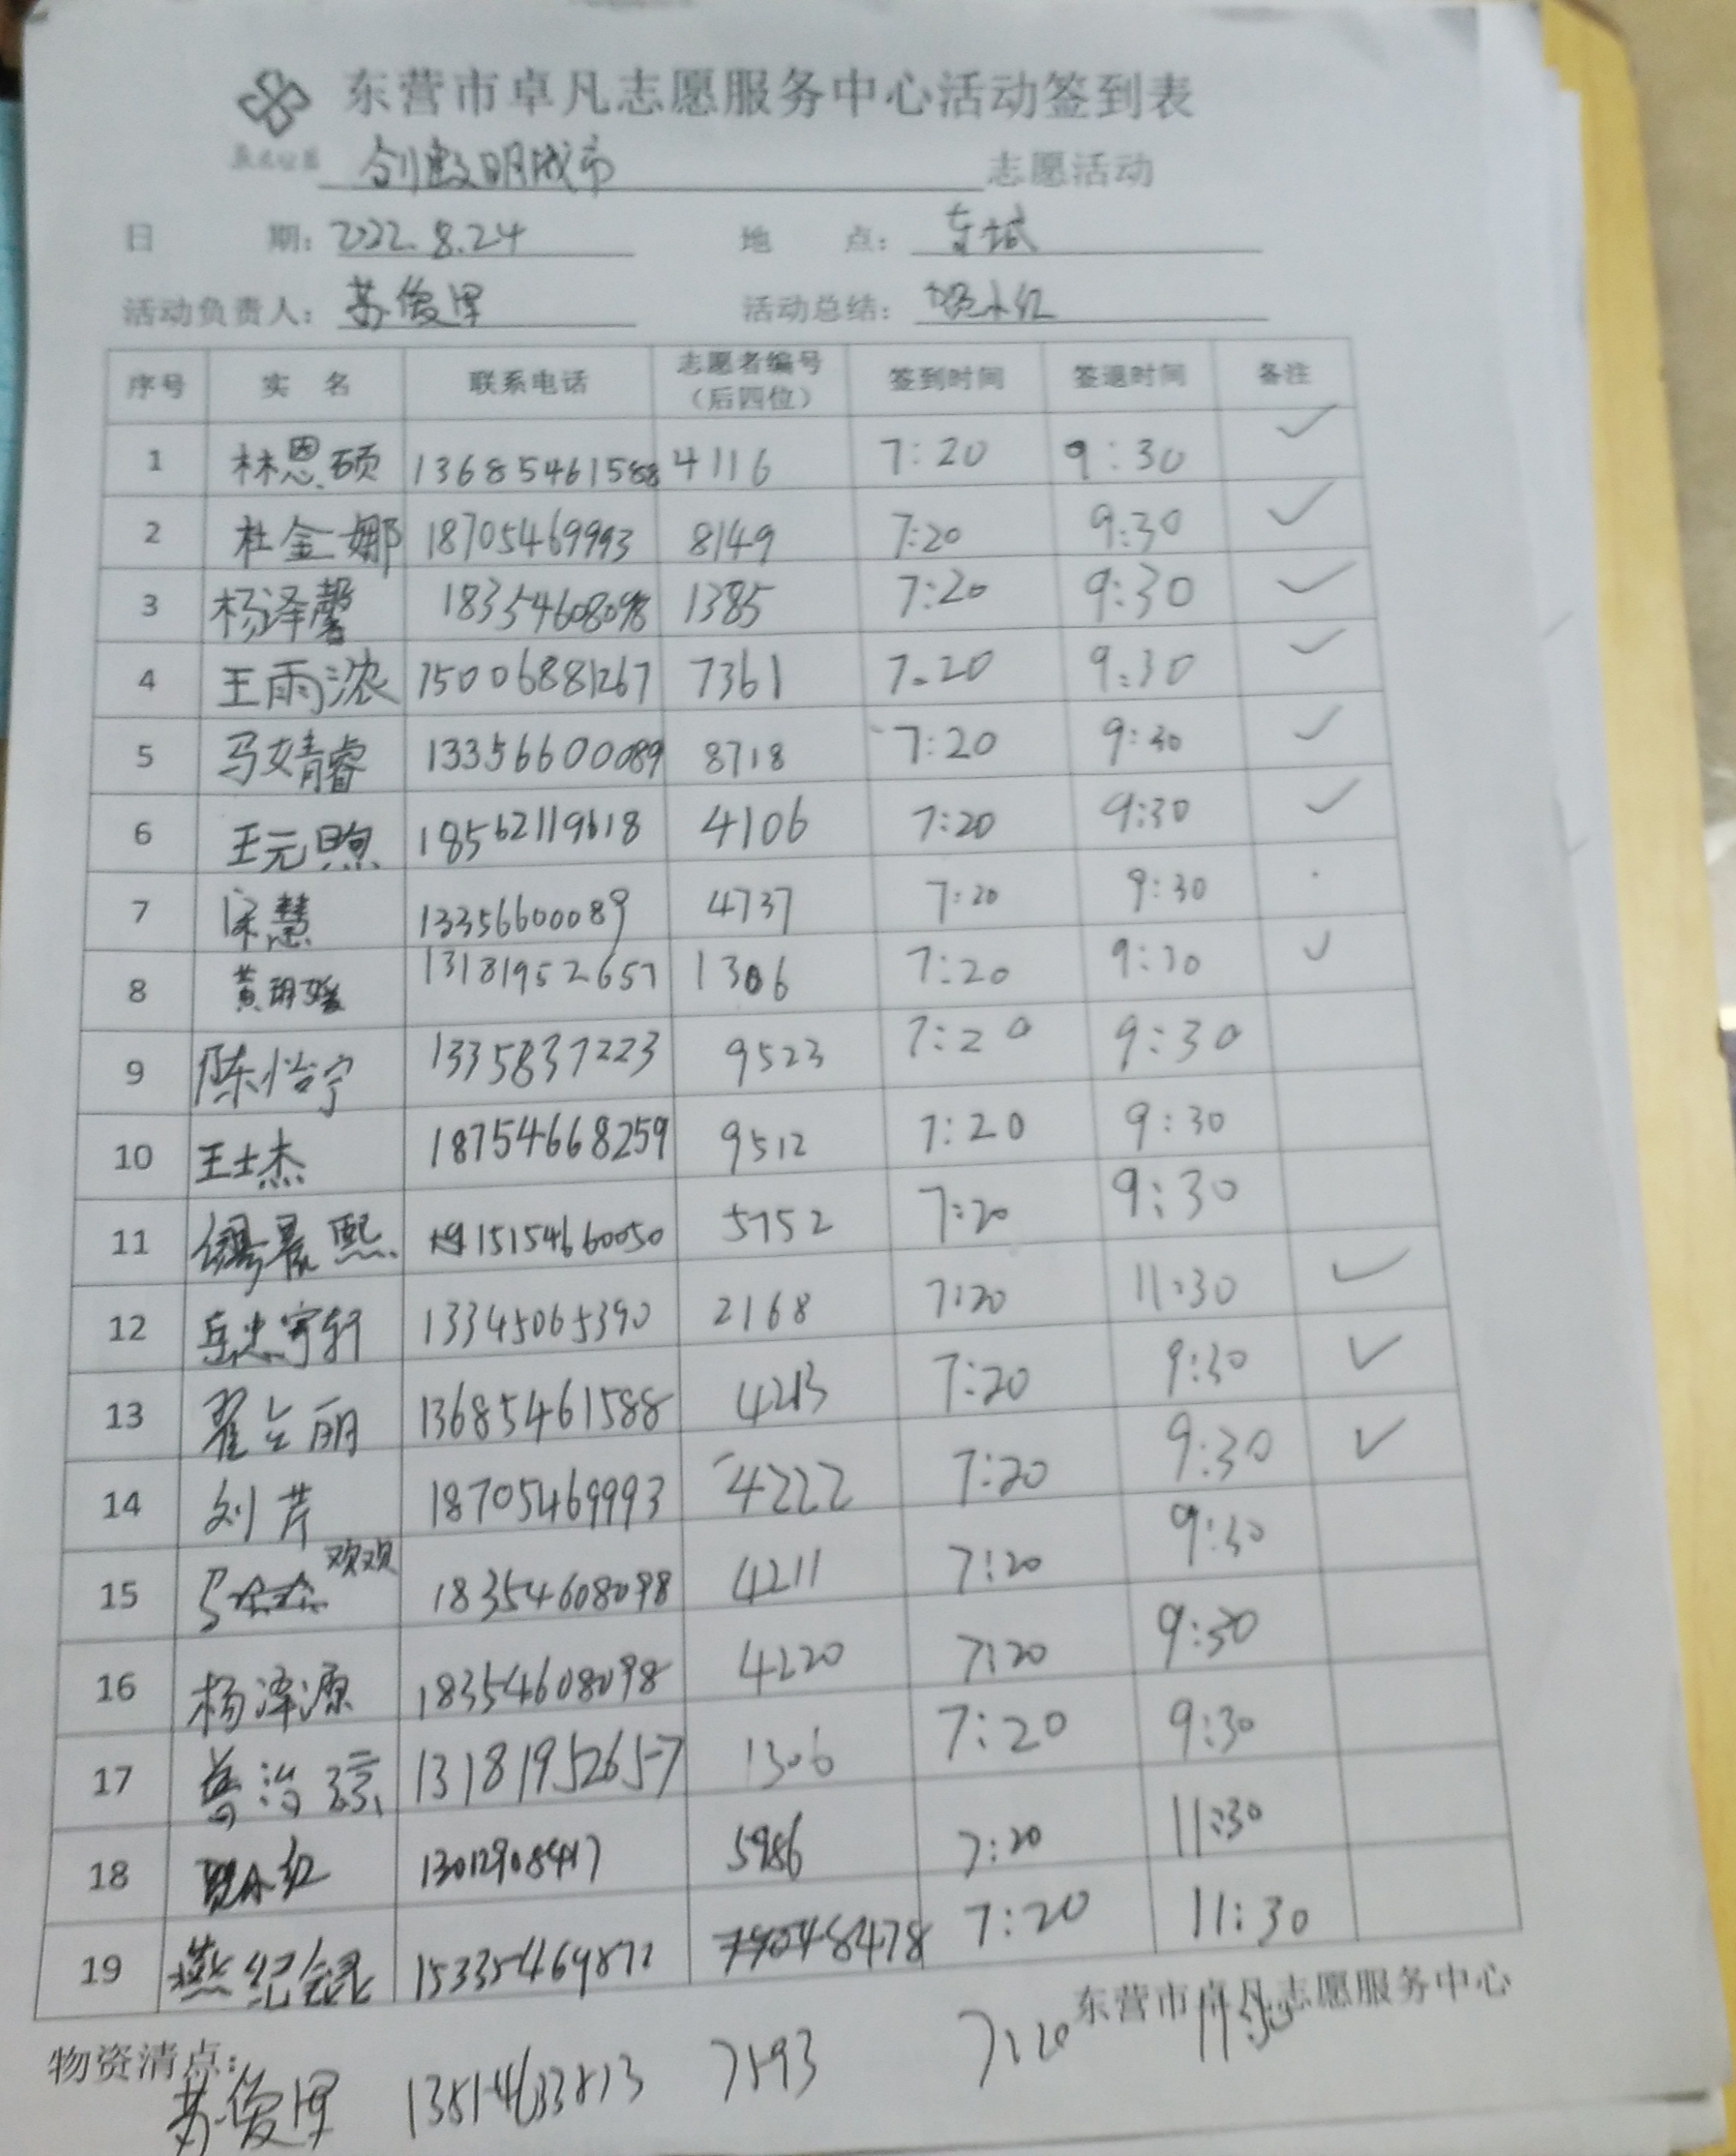 东营市卓凡志愿服务中心活动签到表
创建文明城市 志愿活动
日 期: 2022.8.24 地 点: 东城
活动负责人: 苏俊泽 活动总结: 红
序号 实 名 联系电话 志愿者编号（后四位） 签到时间 签退时间 备注
1 林恩硕 13685461588 4116 7:20 9:30 ✓
2 杜金娜 18705469993 8149 7:20 9:30 ✓
3 杨泽馨 18354608098 1385 7:20 9:30 ✓
4 王雨浓 15006881267 7361 7:20 9:30 ✓
5 马婧睿 13356600089 8718 7:20 9:30 ✓
6 王元煦 18562119618 4106 7:20 9:30 ✓
7 慧 13356600089 4737 7:20 9:30
8 黄玥媛 13181952657 1306 7:20 9:30 ✓
9 陈怡宁 1335837223 9523 7:20 9:30
10 王士杰 18754668259 9512 7:20 9:30
11 晨熙 15154660050 5752 7:20 9:30
12 岳忠宇轩 13345065390 2168 7:20 11:30 ✓
13 翟立丽 13685461588 4213 7:20 9:30 ✓
14 刘芹 18705469993 4222 7:20 9:30 ✓
15 马欢欢 18354608098 4211 7:20 9:30
16 杨泽源 18354608098 4220 7:20 9:30
17 治琼 13181952657 1306 7:20 9:30
18 红 13012908447 5986 7:20 11:30
19 燕纪录 15335469871 8478 7:20 11:30
东营市卓凡志愿服务中心
物资清点:
苏俊泽 13514633813 7593 7:20 11:30